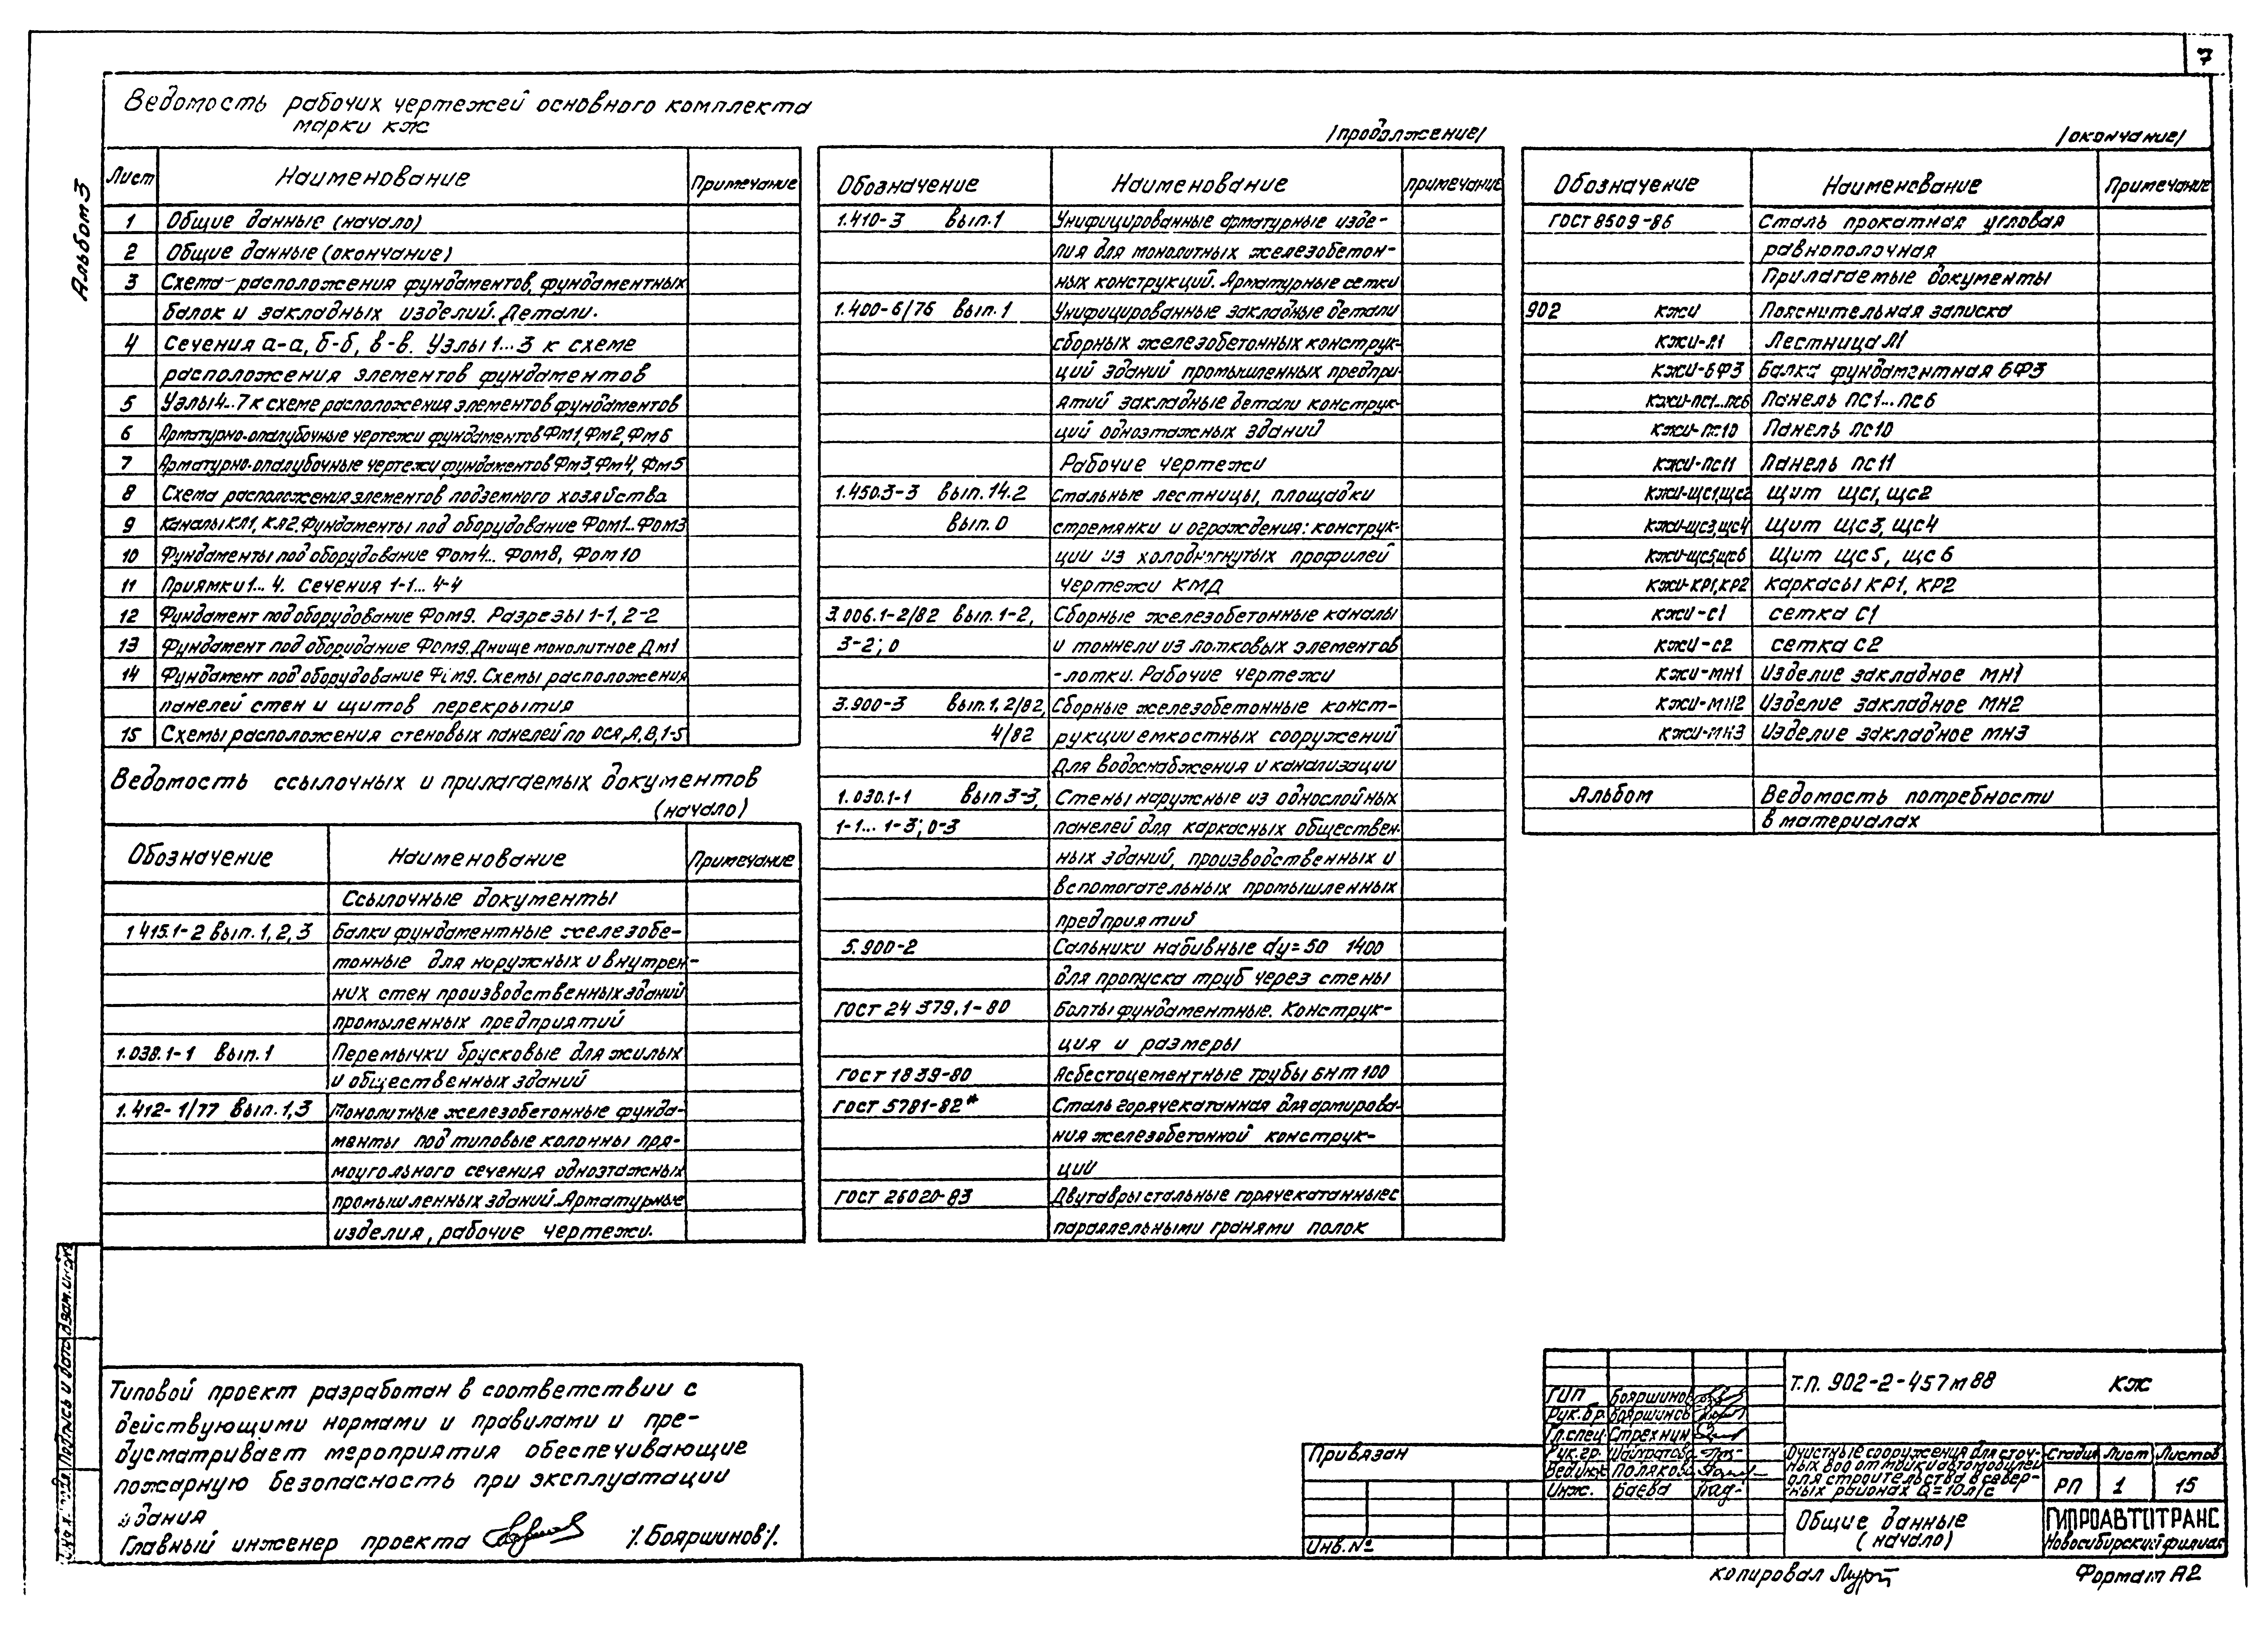 7
Альбом 3
Ведомость рабочих чертежей основного комплекта
марки КЖ
Лист Наименование Примечание
1 Общие данные (начало)
2 Общие данные (окончание)
3 Схема расположения фундаментов, фундаментных
балок и закладных изделий. Детали.
4 Сечения а-а, б-б, в-в. Узлы 1...3 к схеме
расположения элементов фундаментов
5 Узлы 4...7 к схеме расположения элементов фундаментов
6 Арматурно-опалубочные чертежи фундаментов Фм1, Фм2, Фм6
7 Арматурно-опалубочные чертежи фундаментов Фм3, Фм4, Фм5
8 Схема расположения элементов подземного хозяйства
9 Каналы КЛ1, КЛ2. Фундаменты под оборудование Фом1...Фом3
10 Фундаменты под оборудование Фом4... Фом8, Фом10
11 Приямки 1... 4. Сечения 1-1... 4-4
12 Фундамент под оборудование Фом9. Разрезы 1-1, 2-2
13 Фундамент под оборудование Фом9. Днище монолитное Дм1
14 Фундамент под оборудование Фом9. Схемы расположения
панелей стен и щитов перекрытия
15 Схемы расположения стеновых панелей по
Ведомость ссылочных и прилагаемых документов
(начало)
Обозначение Наименование Примечание
Ссылочные документы
1.415.1-2 вып. 1, 2, 3 Балки фундаментные железобе-
тонные для наружных и внутрен-
них стен производственных зданий
промыленных предприятий
1.038.1-1 вып. 1 Перемычки брусковые для жилых
и общественных зданий
1.412-1/77 вып. 1, 3 Монолитные железобетонные фунда-
менты под типовые колонны пря-
моугольного сечения одноэтажных
промышленных зданий. Арматурные
изделия, рабочие чертежи.
/продолжение/
Обозначение Наименование примечание
1.410-3 вып. 1 Унифицированные арматурные изде-
лия для монолитных железобетон-
ных конструкций. Арматурные сетки
1.400-6/76 вып. 1 Унифицированные закладные детали
сборных железобетонных конструк-
ций зданий промышленных предпри-
ятий закладные детали конструк-
ций одноэтажных зданий
Рабочие чертежи
1.450.3-3 вып. 14.2 Стальные лестницы, площадки
вып. 0 стремянки и ограждения: конструк-
ции из холодногнутых профилей
чертежи КМД
3.006.1-2/82 вып. 1-2, Сборные железобетонные каналы
3-2; 0 и тоннели из лотковых элементов
-лотки. Рабочие чертежи
3.900-3 вып. 1, 2/82, Сборные железобетонные конст-
4/82 рукции емкостных сооружений
для водоснабжения и канализации
1.030.1-1 вып 3-3, Стены наружные из однослойных
1-1... 1-3; 0-3 панелей для каркасных обществен-
ных зданий, производственных и
вспомогательных промышленных
предприятий
5.900-2 Сальники набивные dу=50 1400
для пропуска труб через стены
ГОСТ 24 379.1-80 Болты фундаментные. Конструк-
ция и размеры
ГОСТ 1839-80 Асбестоцементные трубы БНТ 100
ГОСТ 5781-82* Сталь горячекатанная для армирова-
ния железобетонной конструк-
ций
ГОСТ 26020-83 Двутавры стальные горячекатанные с
параллельными гранями полок
/окончание/
Обозначение Наименование Примечание
ГОСТ 8509-86 Сталь прокатная угловая
равнополочная
Прилагаемые документы
902 КЖИ Пояснительная записка
КЖИ-Л1 Лестница Л1
КЖИ-БФ3 Балка фундаментная БФ3
КЖИ-ПС1...ПС6 Панель ПС1...ПС6
КЖИ-ПС10 Панель ПС10
КЖИ-ПС11 Панель ПС11
КЖИ-ЩС1,ЩС2 Щит ЩС1, ЩС2
КЖИ-ЩС3,ЩС4 Щит ЩС3, ЩС4
КЖИ-ЩС5,ЩС6 Щит ЩС5, ЩС6
КЖИ-КР1,КР2 Каркасы КР1, КР2
КЖИ-С1 Сетка С1
КЖИ-С2 Сетка С2
КЖИ-МН1 Изделие закладное МН1
КЖИ-МН2 Изделие закладное МН2
КЖИ-МН3 Изделие закладное МН3
Альбом Ведомость потребности
в материалах
Типовой проект разработан в соответствии с
действующими нормами и правилами и пре-
дусматривает мероприятия обеспечивающие
пожарную безопасность при эксплуатации
здания
Главный инженер проекта /.Бояршинов/.
Подпись и дата Взам. инв.
Привязан
Инв. №
ГИП Бояршинов
Рук. бр. Бояршинов
Гл. спец Стрехнин
Рук. гр.
Вед. инж Поляков
Инж. Баева
Т.П. 902-2-457м88 КЖ
Очистные сооружения для сточ-
ных вод от мойки автомобилей
для строительства в север-
ных районах Q=10л/с
Стадия Лист Листов
РП 1 15
Общие данные
(начало)
ГИПРОАВТОТРАНС
Новосибирский филиал
Копировал
Формат А2